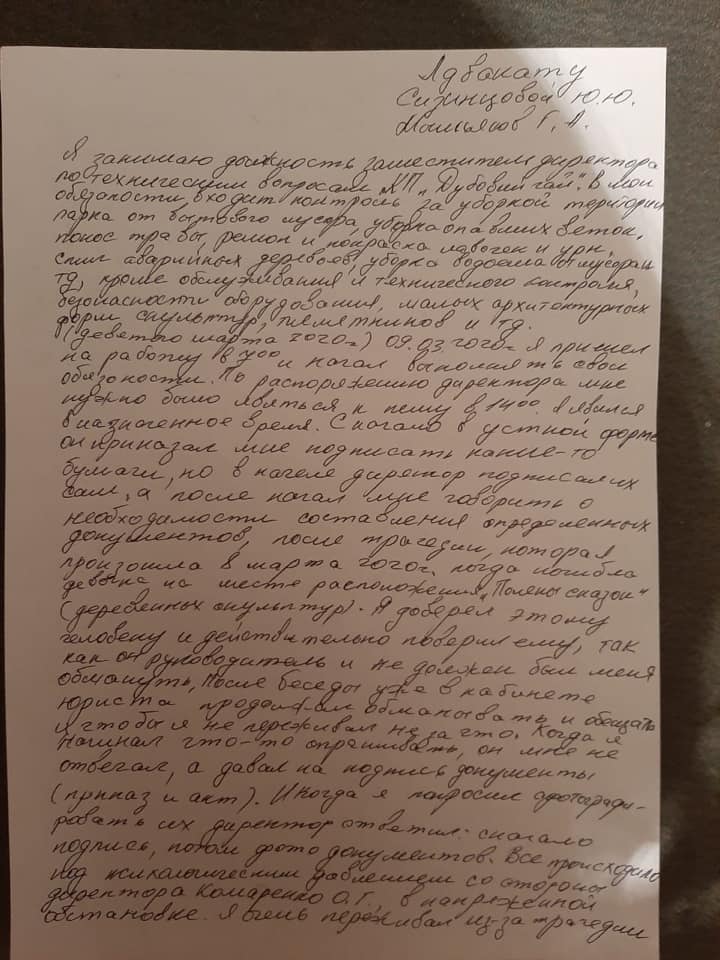 Адвокату
Сизинцовой Ю.Ю.
Г. А.
Я занимаю должность заместителя директора
по техническим вопросам КП "Дубовый гай". В мои
обязоности входит контроль за уборкой територии
парка от бытового мусора, уборка опавших веток,
покос травы, ремон и покраска лавочек и урн,
спил аварийных деревьев, уборка водоема от мусора и
тд, кроме обслуживания и технического контроля,
безопасности оборудования, малых архитектурных
форм скульптур, пямятников и тд.
(девятого марта 2020г) 09.03.2020г Я пришел
на работу в 700 и начал выполнять свои
обязоности. По распоряжению директора мне
нужно было явяться к нему в 1400. Я явился
в назначенное время. Сначало в устной форме
он приказал мне подписать какие-то
бумаги, но в начеле директор подписал их
сам, а после начал мне говорить о
необходимости составления определенных
документов, после трагедии, которая
произошла 8 марта 2020г. когда погибла
девочка на месте расположения "Поляны сказок"
(деревянных скульптур). Я доверел этому
человеку и действительно поверил ему, так
как он руководитель и не должен был меня
обмануть, После беседы уже в кабинете
юриста продолжал обманывать и обещать
и чтобы я не переживал не за что. Когда я
начинал что-то спрашивать, он мне не
отвечал, а давал на подпись документы
(приказ и акт). И когда я попросил сфотографи-
ровать их директор ответил: сначало
подпись, потом фото документов. Все происходило
под психологическим давлением со стороны
директора Комаренко О.Г., в напряженной
обстановке. Я очень переживал из-за трагедии